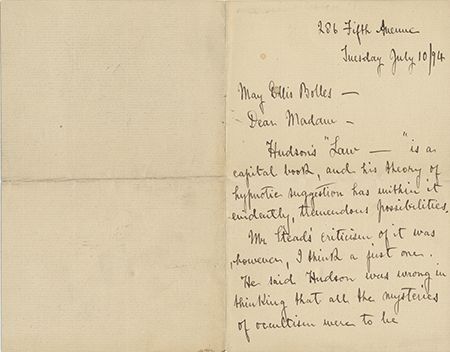 286 Fifth Avenue
Tuesday July 10/94
May Ellis Bolles —
Dear Madam —
Hudson's "Law — " is a
capital book, and his theory of
hypnotic suggestion has within it
evidently, tremendous possibilities.
Mr Stead's criticism of it was
, however, I think a just one.
He said Hudson was wrong in
thinking that all the mysteries
of occultism were to be